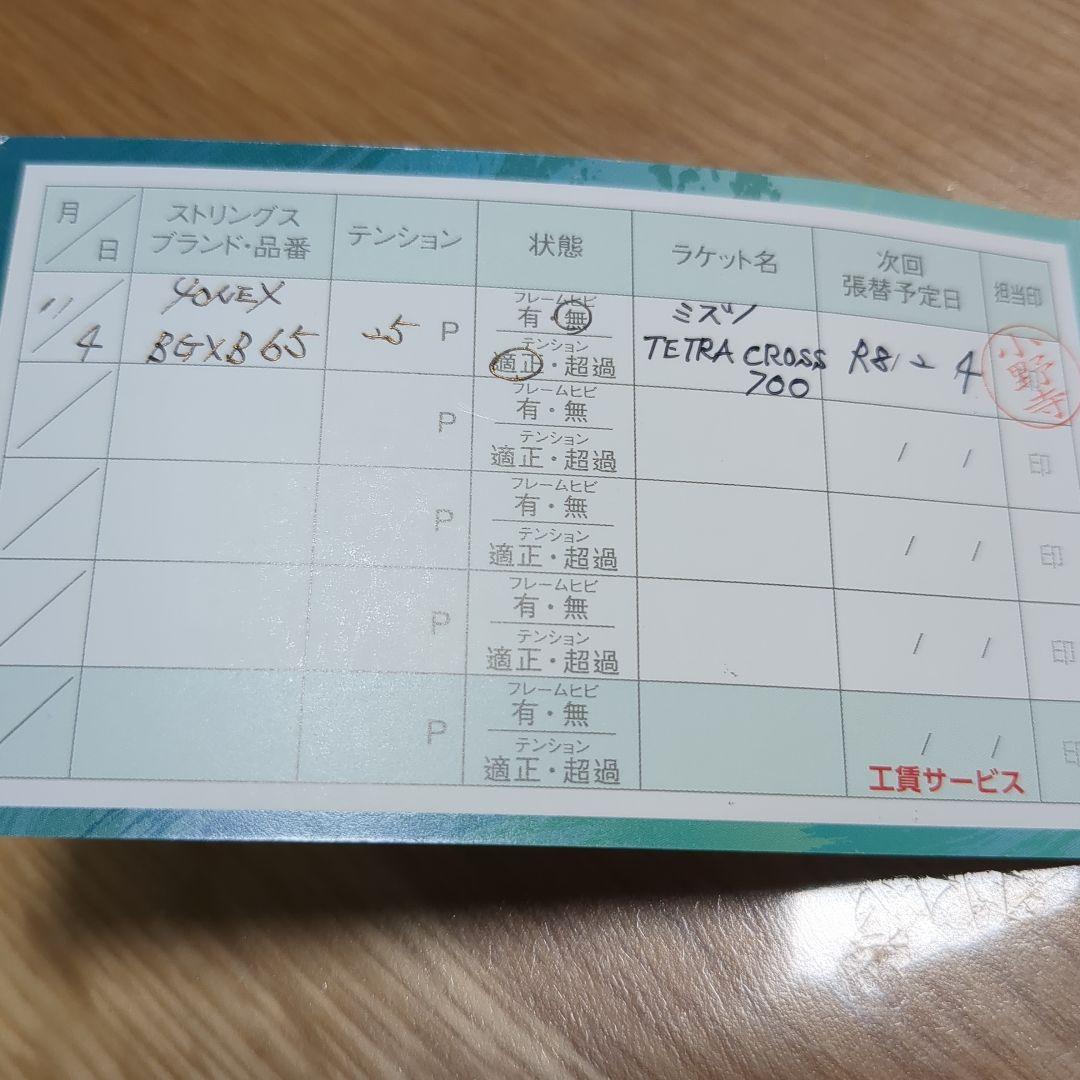 月/日
ストリングス
ブランド・品番
テンション
状態
ラケット名
次回
張替予定日
担当印
11/4
YONEX
BGXB65
25 P
フレームヒビ
有・無
テンション
適正・超過
ミズノ
TETRA CROSS
700
R8/2 4
小野寺
/
P
フレームヒビ
有・無
テンション
適正・超過
/ /
印
/
P
フレームヒビ
有・無
テンション
適正・超過
/ /
印
/
P
フレームヒビ
有・無
テンション
適正・超過
/ /
印
/
P
フレームヒビ
有・無
テンション
適正・超過
/ /
印
工賃サービス